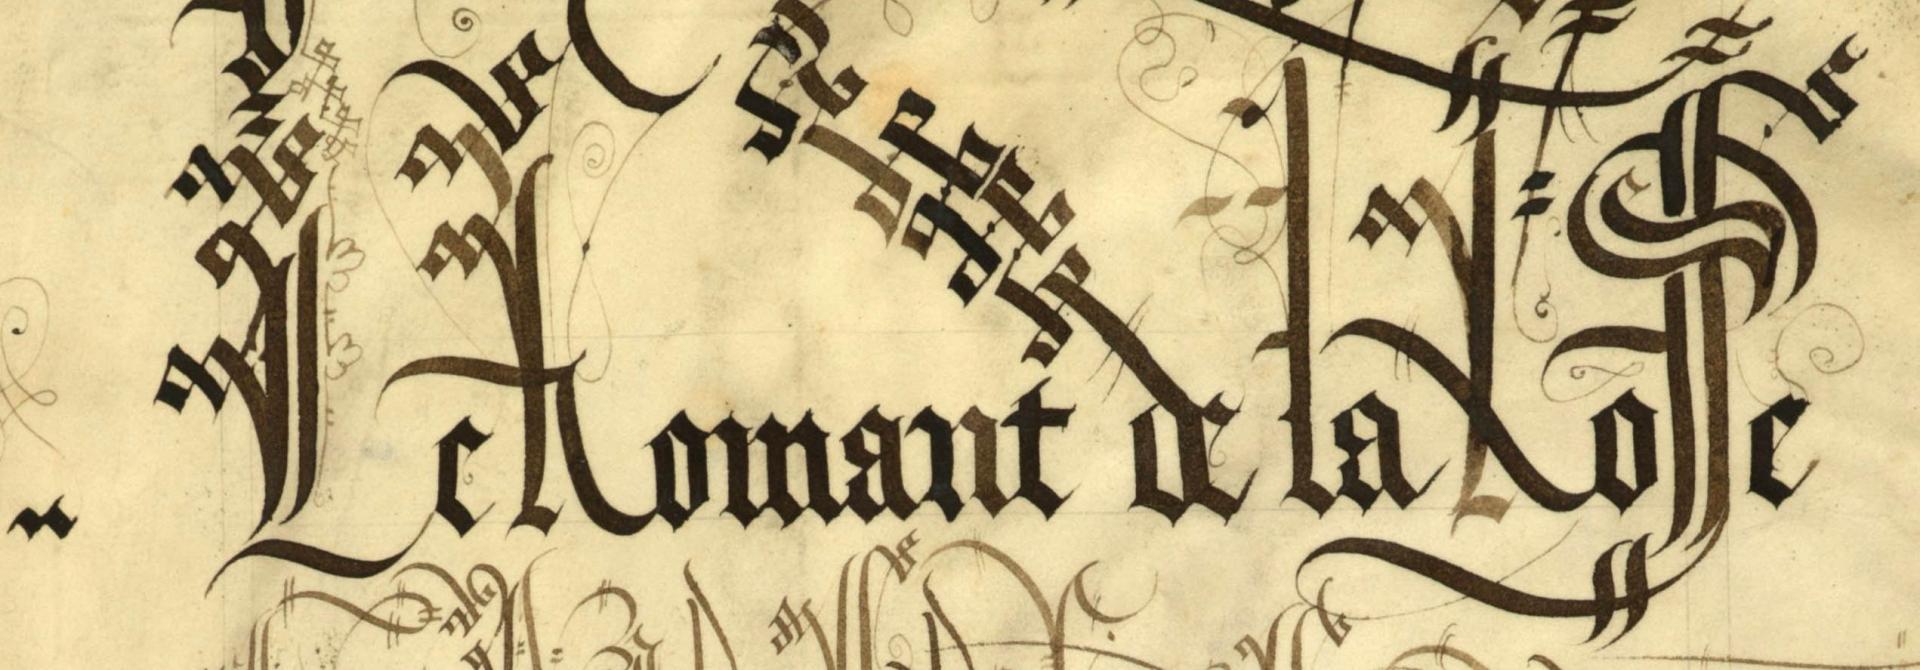 Le Romant de la Rose